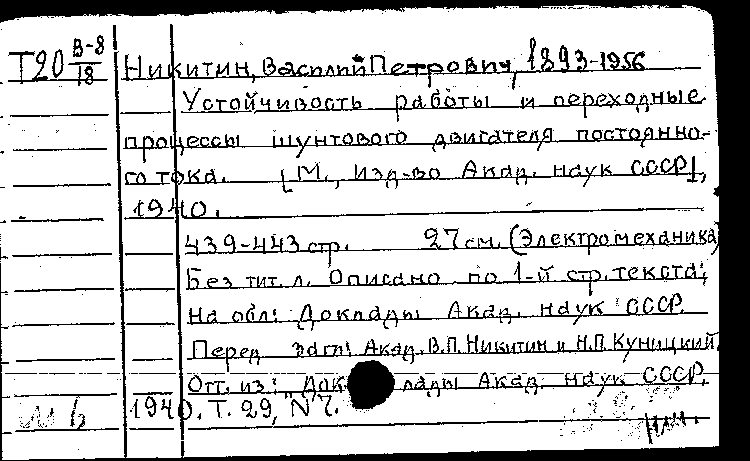 Т20 В-8/18 Никитин, Василий Петрович, 1893-1956
Устойчивость работы и переходные
процессы шунтового двигателя постоянно-
го тока. [М., Изд-во Акад. наук СССР],
1940.
439-443 стр. 27 см. (Электромеханика)
Без тит. л. Описано по 1-й стр. текста;
На обл: Докладды Акад. наук СССР.
Перед загл: Акад. В.П. Никитин и Н.П. Куницкий.
Отт. из: "Доклады Акад. наук СССР,
1940. Т. 29, N 7.